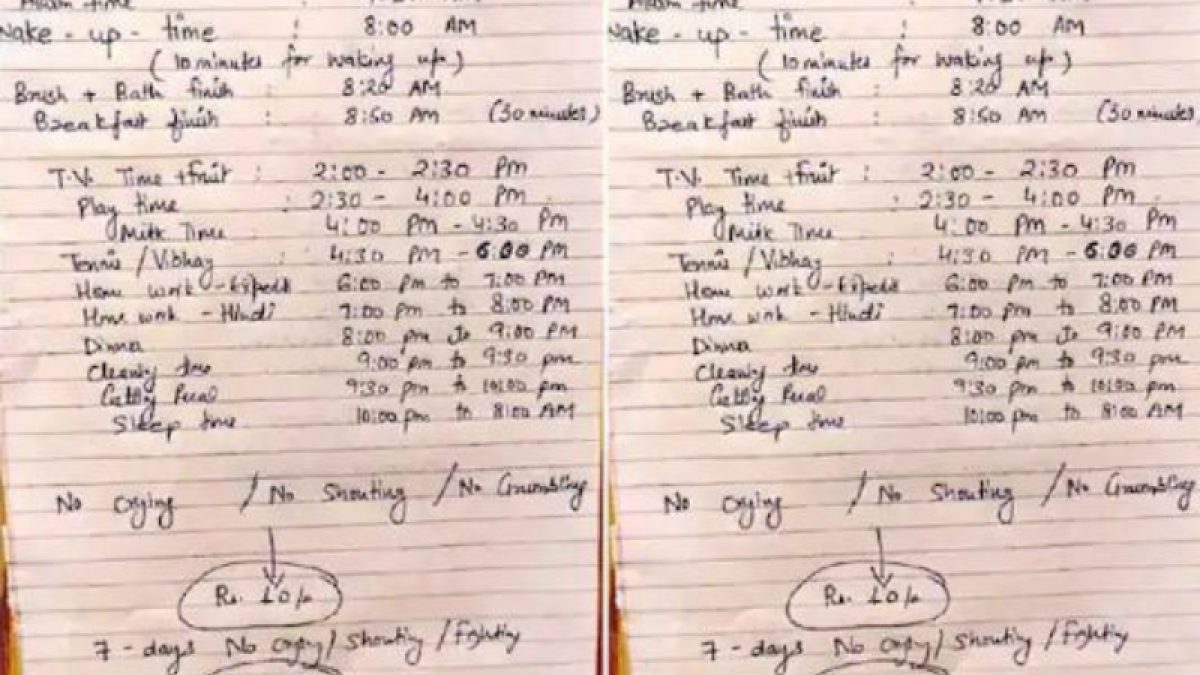 time :
Wake - up - time : 8:00 AM
(10 minutes for waking up)
Brush + Bath finish : 8:20 AM
Breakfast finish : 8:50 AM (30 minutes)
T.V. Time + fruit : 2:00 - 2:30 PM
Play time : 2:30 - 4:00 PM
Milk Time : 4:00 PM - 4:30 PM
Tennis / Vibhag : 4:30 PM - 6:00 PM
Home work - 6:00 PM to 7:00 PM
Home work - Hindi 7:00 PM to 8:00 PM
Dinner 8:00 pm to 9:00 PM
Cleaning time 9:00 pm to 9:30 pm
9:30 pm to 10:00 pm
Sleep time 10:00 pm to 8:00 AM
No Crying / No Shouting / No Grumbling
Rs. 10/-
7 - days No Crying / Shouting / Fighting
time :
Wake - up - time : 8:00 AM
(10 minutes for waking up)
Brush + Bath finish : 8:20 AM
Breakfast finish : 8:50 AM (30 minutes)
T.V. Time + fruit : 2:00 - 2:30 PM
Play time : 2:30 - 4:00 PM
Milk Time : 4:00 PM - 4:30 PM
Tennis / Vibhag : 4:30 PM - 6:00 PM
Home work - 6:00 PM to 7:00 PM
Home work - Hindi 7:00 PM to 8:00 PM
Dinner 8:00 pm to 9:00 PM
Cleaning time 9:00 pm to 9:30 pm
9:30 pm to 10:00 pm
Sleep time 10:00 pm to 8:00 AM
No Crying / No Shouting / No Grumbling
Rs. 10/-
7 - days No Crying / Shouting / Fighting